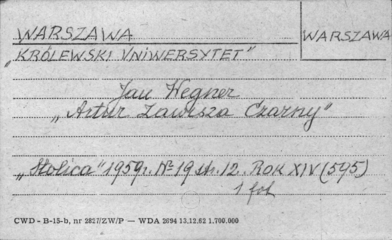 WARSZAWA WARSZAWA
„KRÓLEWSKI UNIWERSYTET”
Jan Wegner
„Artur Zawisza Czarny”
„Stolica” 1959r. No 19 str. 12. ROK XIV (595)
1 fot
CWD - B-15-b, nr 2827/ZW/P — WDA 2694 13.12.62 1.700.000